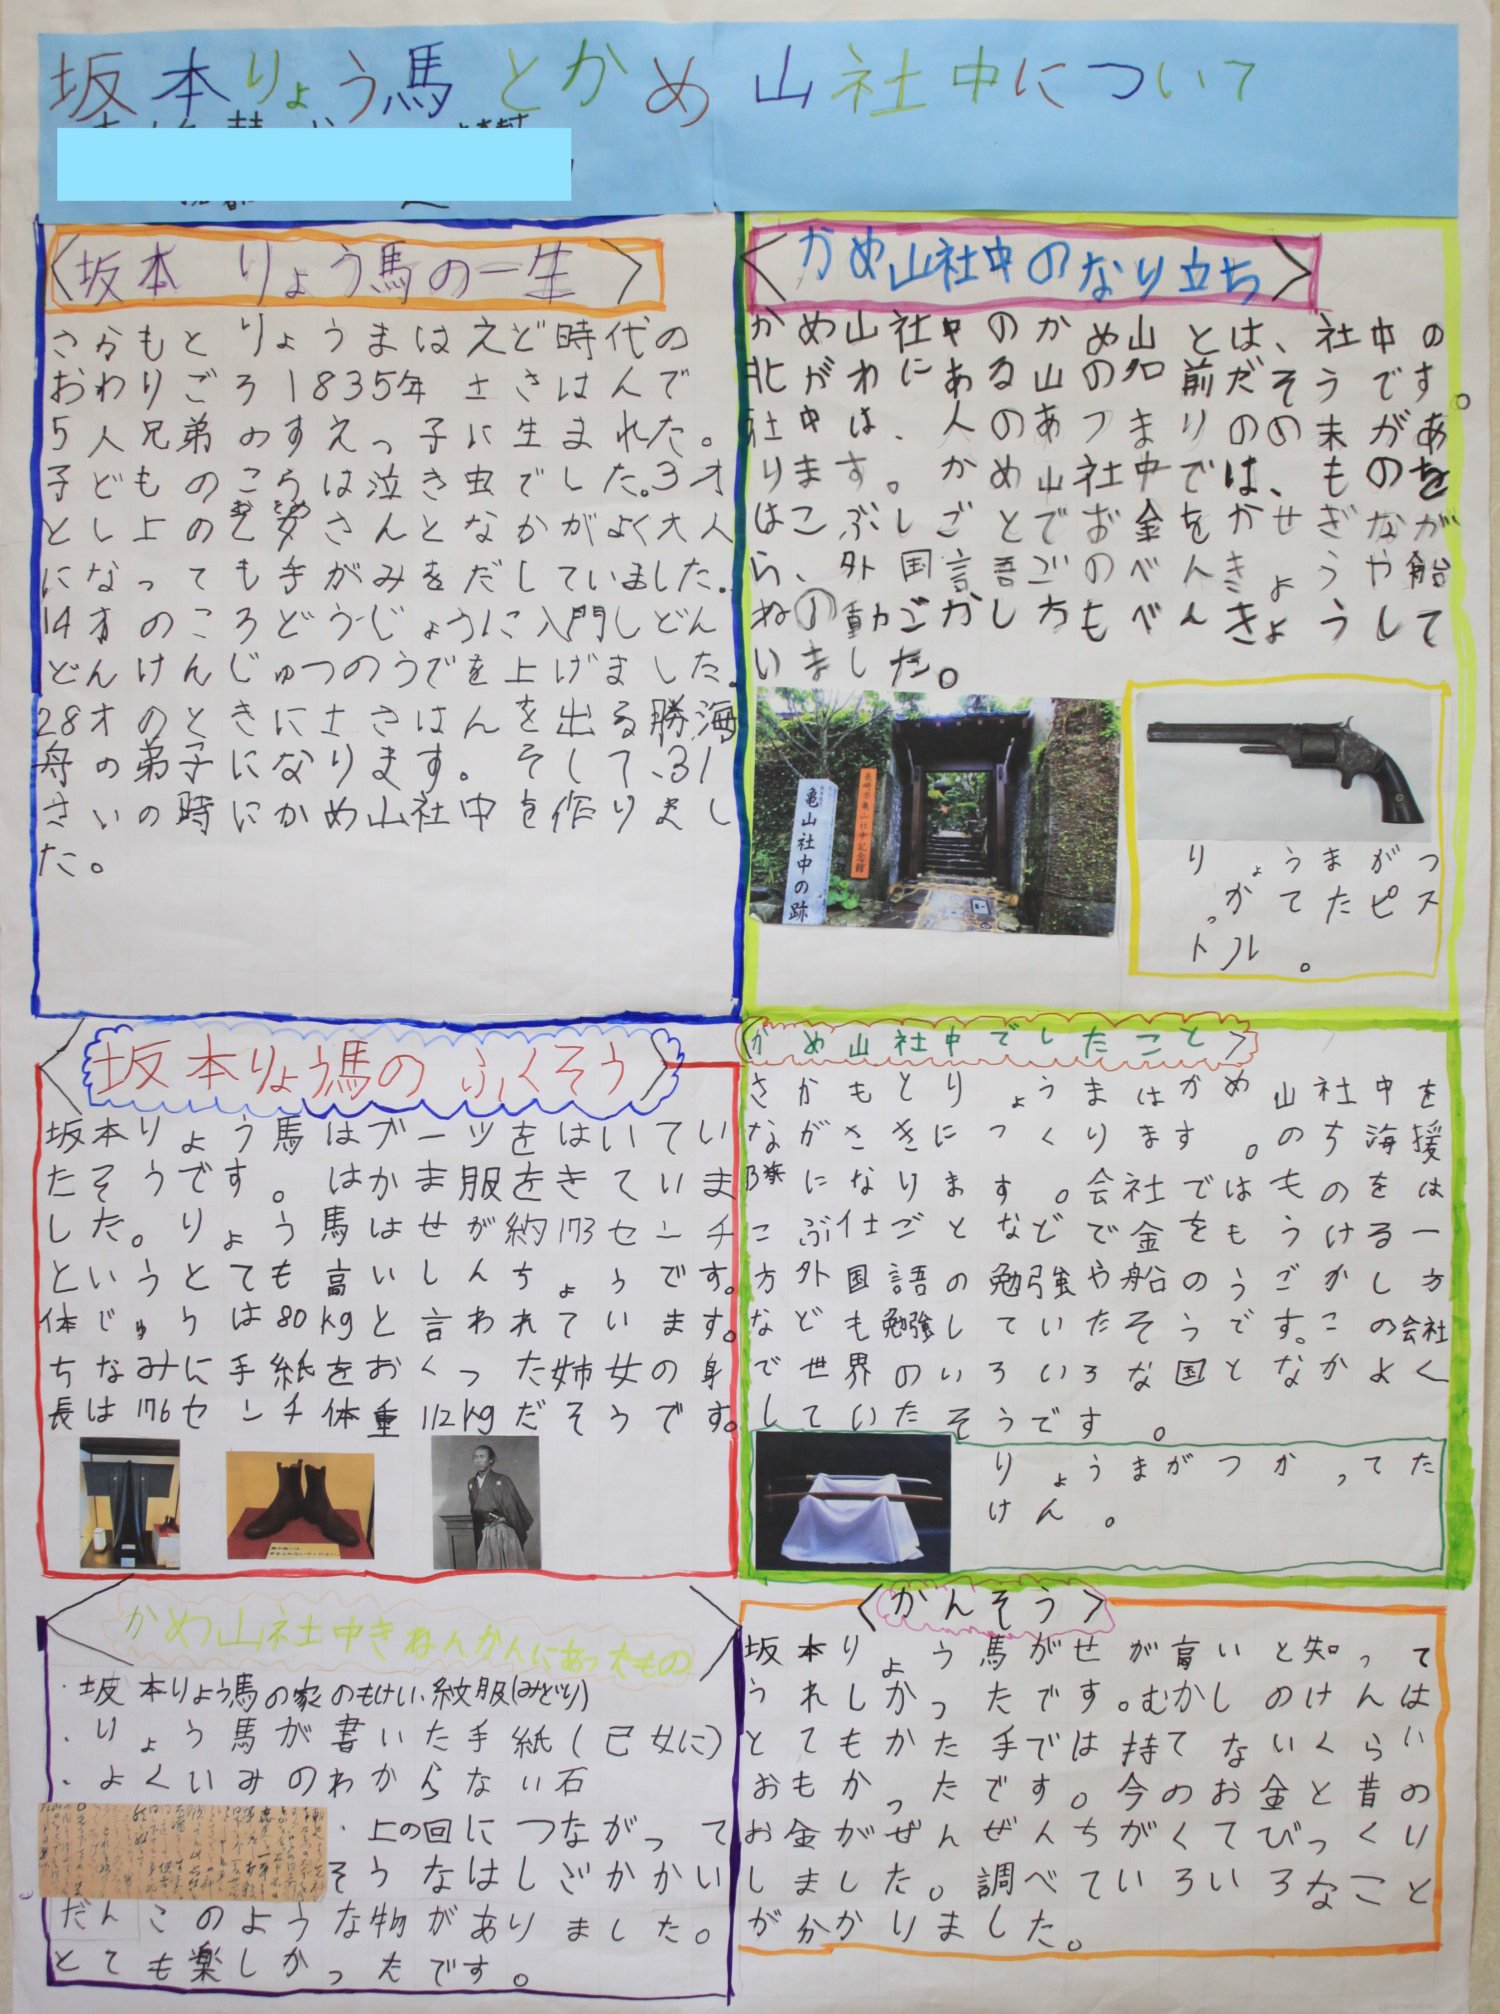 坂本りょう馬とかめ山社中について
〈坂本 りょう馬の一生〉
さかもとりょうまはえど時代の
おわりごろ1835年 土さはんで
5人兄弟のすえっ子に生まれた。
子どものころは泣き虫でした。3才
とし上の乙女さんとなかがよく大人
になっても手がみをだしていました。
14才のころどうじょうに入門しどん
どんけんじゅつのうでを上げました。
28才のときに土さはんを出る勝海
舟の弟子になります。そして、31
さいの時にかめ山社中を作りまし
た。
〈かめ山社中のなり立ち〉
かめ山社中のかめ山とは、社中の
北がわにある山の名前だそうです。
社中は、人のあつまりのの末があ
ります。かめ山社中では、ものを
はこぶしごとでお金をかせぎなが
ら、外国言吾ごのべんきょうや船
ねの動ごかし方もべんきょうして
いました。
亀山社中の跡
長崎市亀山社中記念館
りょうまがつ
かってたピス
トル。
〈坂本りょう馬のふくそう〉
坂本りょう馬はブーツをはいてい
たそうです。はかま服をきていま
した。りょう馬はせが約173センチ
というとても高いしんちょうです。
体じゅうは80kgと言われています。
ちなみに手紙をおくった姉女の身
長は176センチ体重112kgだそうです。
〈かめ山社中でしたこと〉
さかもとりょうまはかめ山社中を
ながさきにつくります。のち海援
隊になります。会社ではものをは
こぶ仕ごとなどで金をもうけるー
方外国語の勉強や船のうごかし方
なども勉強していたそうです。この会社
で世界のいろいろな国となかよく
していたそうです。
りょうまがつかってた
けん。
かめ山社中きねんかんにあったもの
・坂本りょう馬の家のもけい、紋服(みどり)
・りょう馬が書いた手紙(己女に)
・よくいみのわからない石
・上の回につながって
そうなはしごかかい
だんこのような物がありました。
とても楽しかったです。
〈かんそう〉
坂本りょう馬がせが高いと知って
うれしかったです。むかしのけんは
とてもかた手では持てないくらい
おもかったです。今のお金と昔の
お金がぜんぜんちがくてびっくり
しました。調べていろいろなこと
が分かりました。